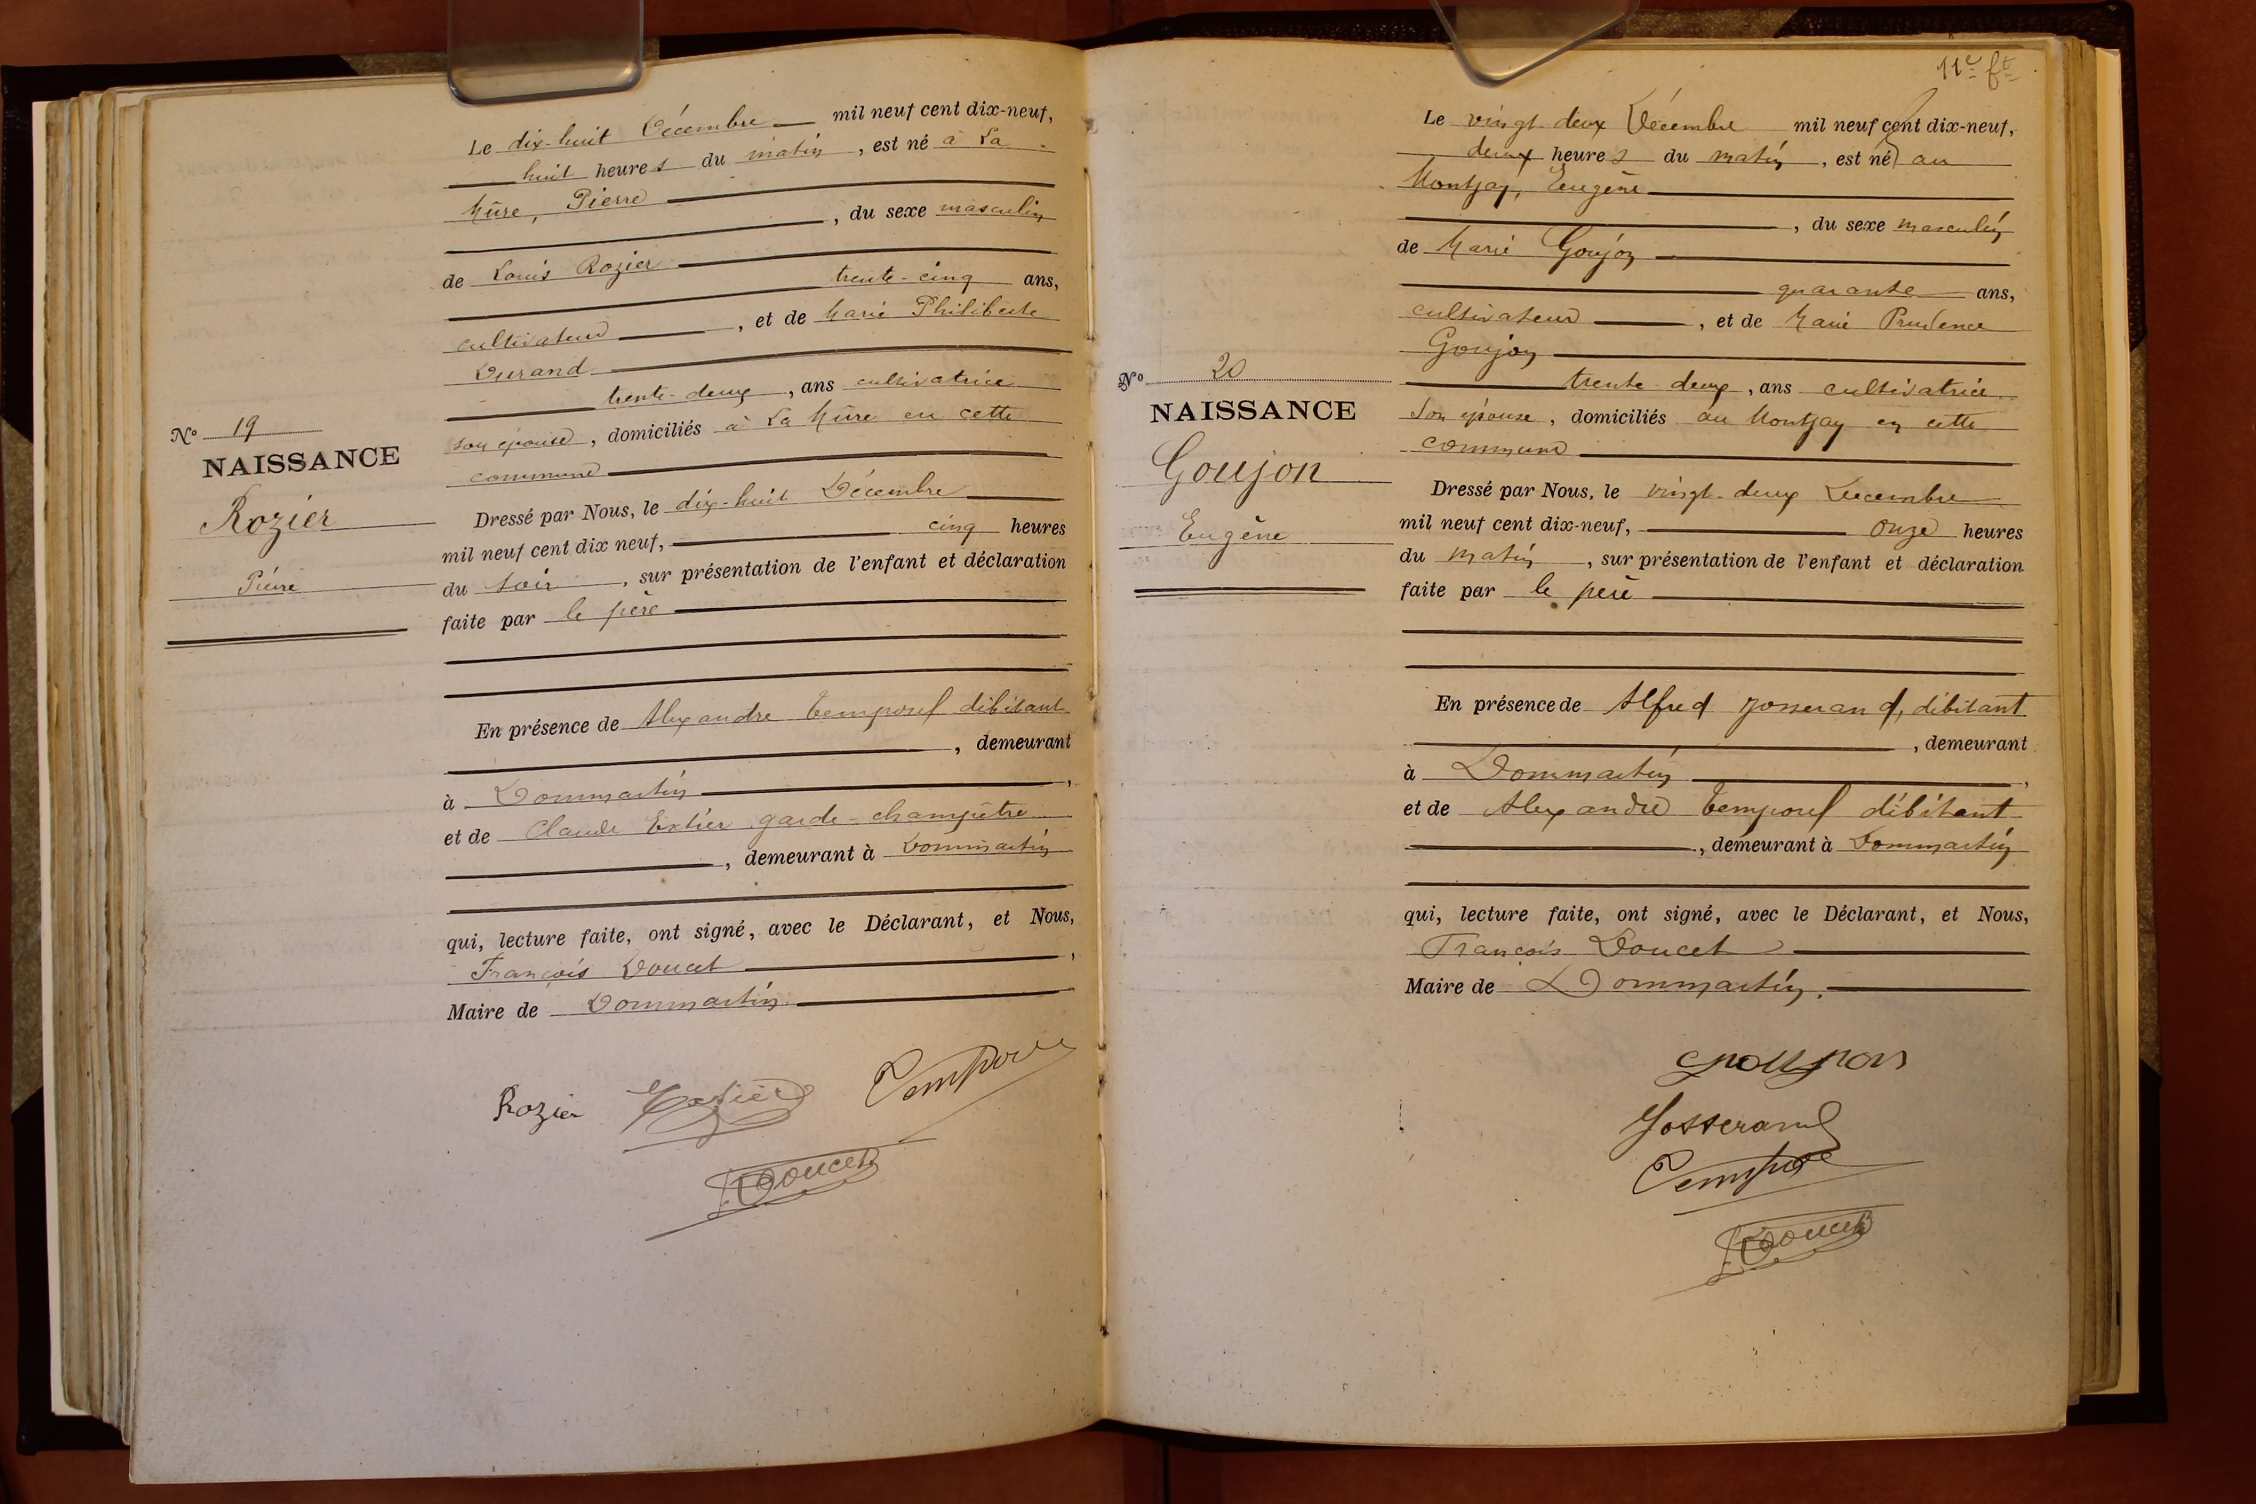 Le dix-huit Décembre mil neuf cent dix-neuf,
huit heures du matin, est né à La
Mûre, Pierre
, du sexe masculin
de Louis Rozier
trente-cinq ans,
cultivateur, et de Marie Philiberte
Durand
trente-deux, ans cultivatrice
son épouse, domiciliés à La Mûre en cette
commune
N° 19
NAISSANCE
Rozier
Pierre
Dressé par Nous, le dix-huit Décembre
mil neuf cent dix neuf, cinq heures
du soir, sur présentation de l'enfant et déclaration
faite par le père
En présence de Alexandre Temporel débitant
, demeurant
à Dommartin,
et de Claude Extier garde-champêtre
, demeurant à Dommartin
qui, lecture faite, ont signé, avec le Déclarant, et Nous,
François Doucet,
Maire de Dommartin.
Rozier Extier
Doucet
11e ft
Le vingt-deux Décembre mil neuf cent dix-neuf,
deux heures du matin, est né au
Montjay, Eugène
, du sexe masculin
de Marie Goujon
quarante ans,
cultivateur, et de Marie Prudence
Goujon
trente-deux, ans cultivatrice
son épouse, domiciliés au Montjay en cette
commune
N° 20
NAISSANCE
Goujon
Eugène
Dressé par Nous, le vingt-deux Décembre
mil neuf cent dix-neuf, onze heures
du matin, sur présentation de l'enfant et déclaration
faite par le père
En présence de Alfred Josserand, débitant
, demeurant
à Dommartin,
et de Alexandre Temporel débitant
, demeurant à Dommartin
qui, lecture faite, ont signé, avec le Déclarant, et Nous,
François Doucet
Maire de Dommartin.
Goujon
Josserand
Doucet